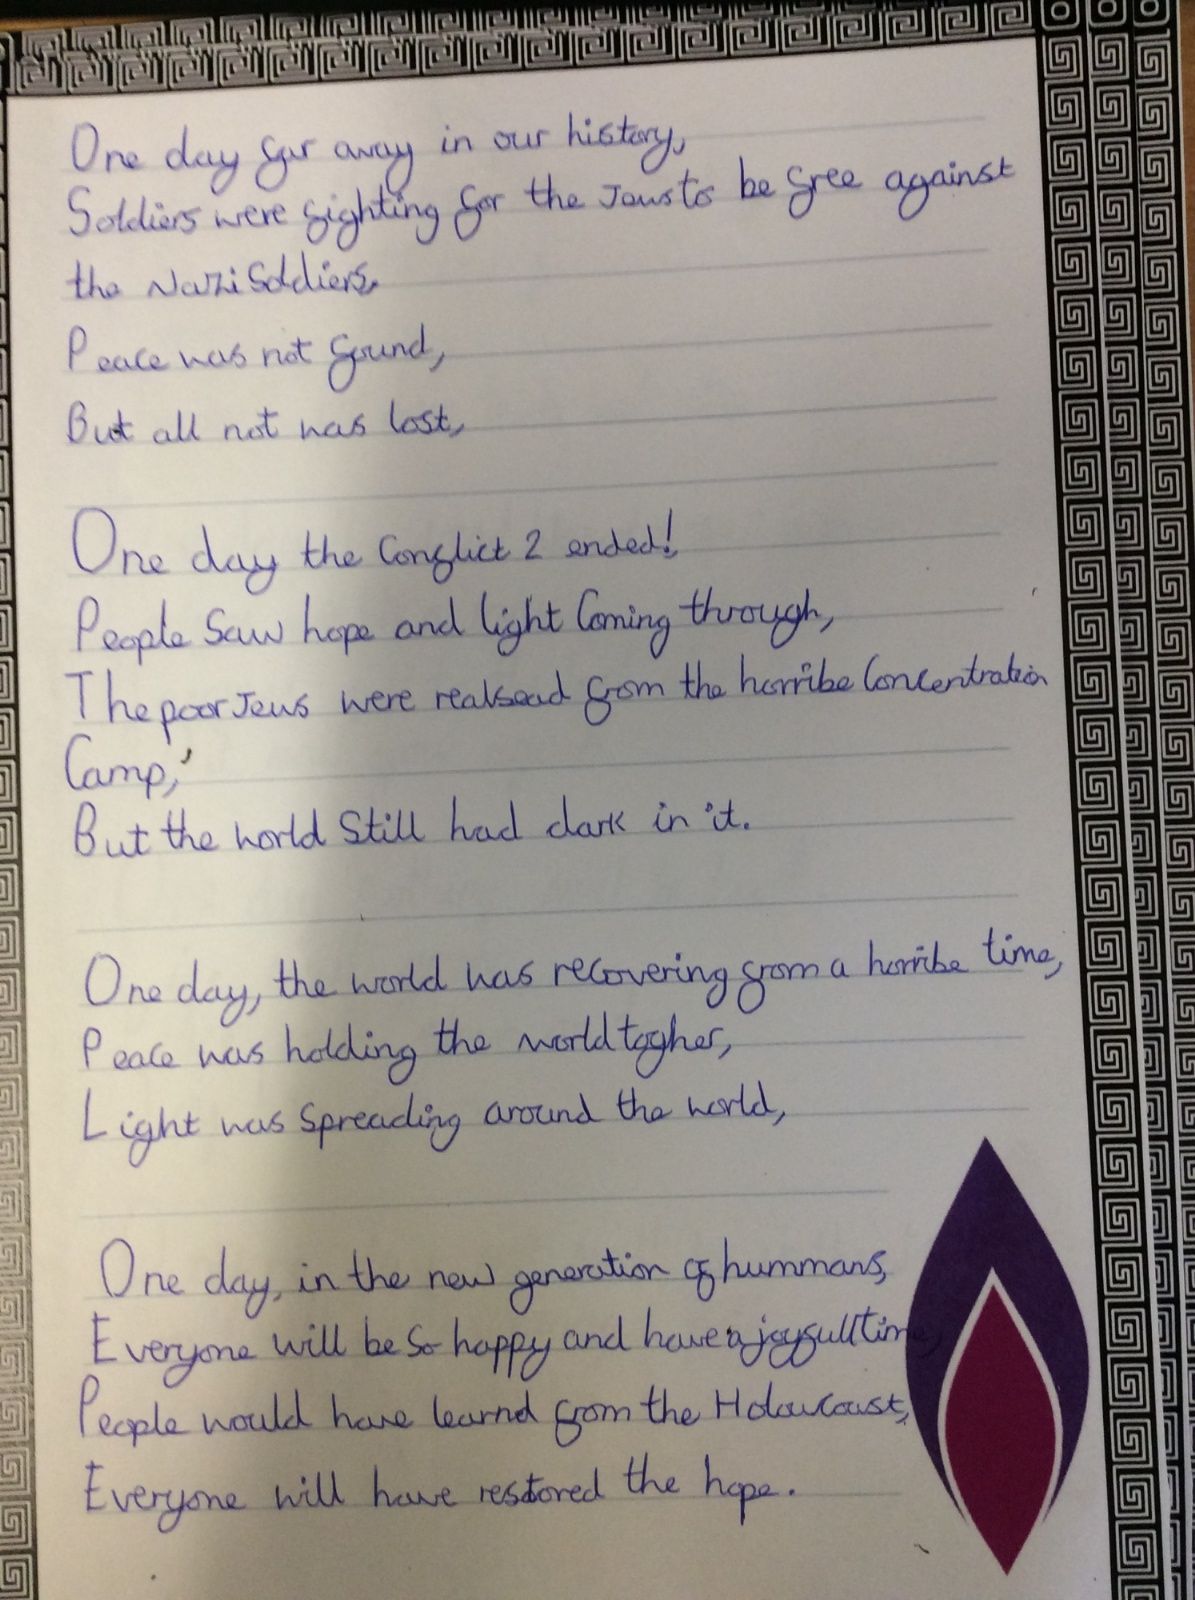 One day far away in our history,
Soldiers were fighting for the Jews to be free against
the Nazi Soldiers.
Peace was not found,
But all not was lost,
One day the Conflict 2 ended!
People Saw hope and light Coming through,
The poor Jews were realsead from the horribe Concentration
Camp,
But the world Still had dark in it.
One day, the world was recovering from a horribe time,
Peace was holding the world togher,
Light was Spreading around the world,
One day, in the new generation of hummans,
Everyone will be so happy and have a joyfull time,
People would have learnd from the Holoucoust,
Everyone will have restored the hope.